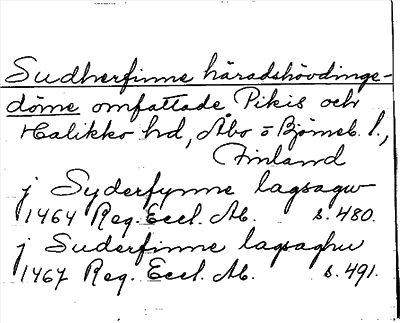 Sudherfinne häradshövdinge-
döme omfattade Pikis och
Halikko hd, Åbo o Björneb. l.,
Finland
j Syderfynne lagsagw
1464 Reg. Eccl. Ab. s. 480.
j Suderfinne lagsaghu
1467 Reg. Eccl. Ab. s. 491.